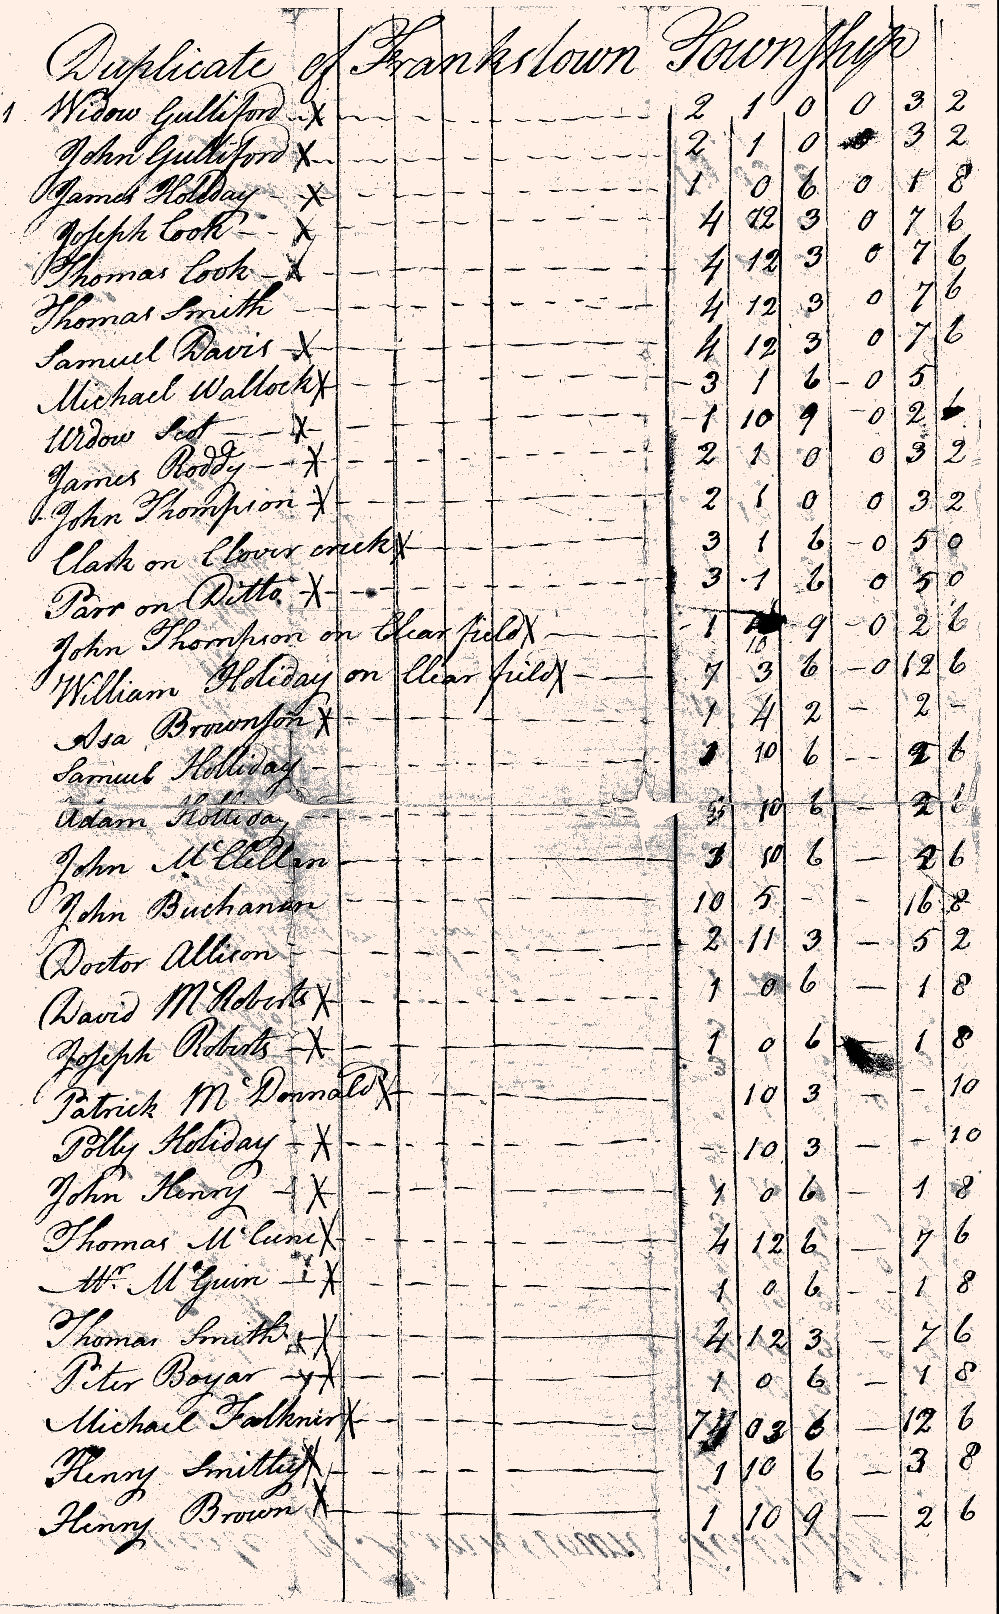 Duplicate of Frankstown Township
1 Widow Gulliford X 2 1 0 0 3 2
John Gulliford X 2 1 0 3 2
James Holiday X 1 0 6 0 1 8
Joseph Cook X 4 12 3 0 7 6
Thomas Cook X 4 12 3 0 7 6
Thomas Smith 4 12 3 0 7 6
Samuel Davis X 4 12 3 0 7 6
Michael Wallock X 3 1 6 0 5
Widow Scot X 1 10 9 0 2
James Roddy X 2 1 0 0 3 2
John Thompson X 2 1 0 0 3 2
Clark on Clover creek X 3 1 6 0 5 0
Parr on Ditto X 3 1 6 0 5 0
John Thompson on Clear field X 1 10 9 0 2 6
William Holiday on Clear field X 7 3 6 0 12 6
Asa Brownson X 1 4 2 — 2 -
Samuel Holliday 10 6 — 2 6
Adam Holliday 10 6 — 2 6
John McClellan 10 6 — 6
John Buchanan 10 5 - - 16 8
Doctor Allison 2 11 3 — 5 2
David McRoberts X 1 0 6 — 1 8
Joseph Roberts X 1 0 6 — 1 8
Patrick McDonnald X 10 3 — - 10
Polly Holiday X - 10 3 — - 10
John Henry X 1 0 6 — 1 8
Thomas McCune X 4 12 6 — 7 6
Mr. McGuin X 1 0 6 - 1 8
Thomas Smith X 4 12 3 — 7 6
Peter Boyar X 1 0 6 — 1 8
Michael Falkner X 7 03 6 — 12 6
Henry Smitty X 1 10 6 — 3 8
Henry Brown X 1 10 9 — 2 6